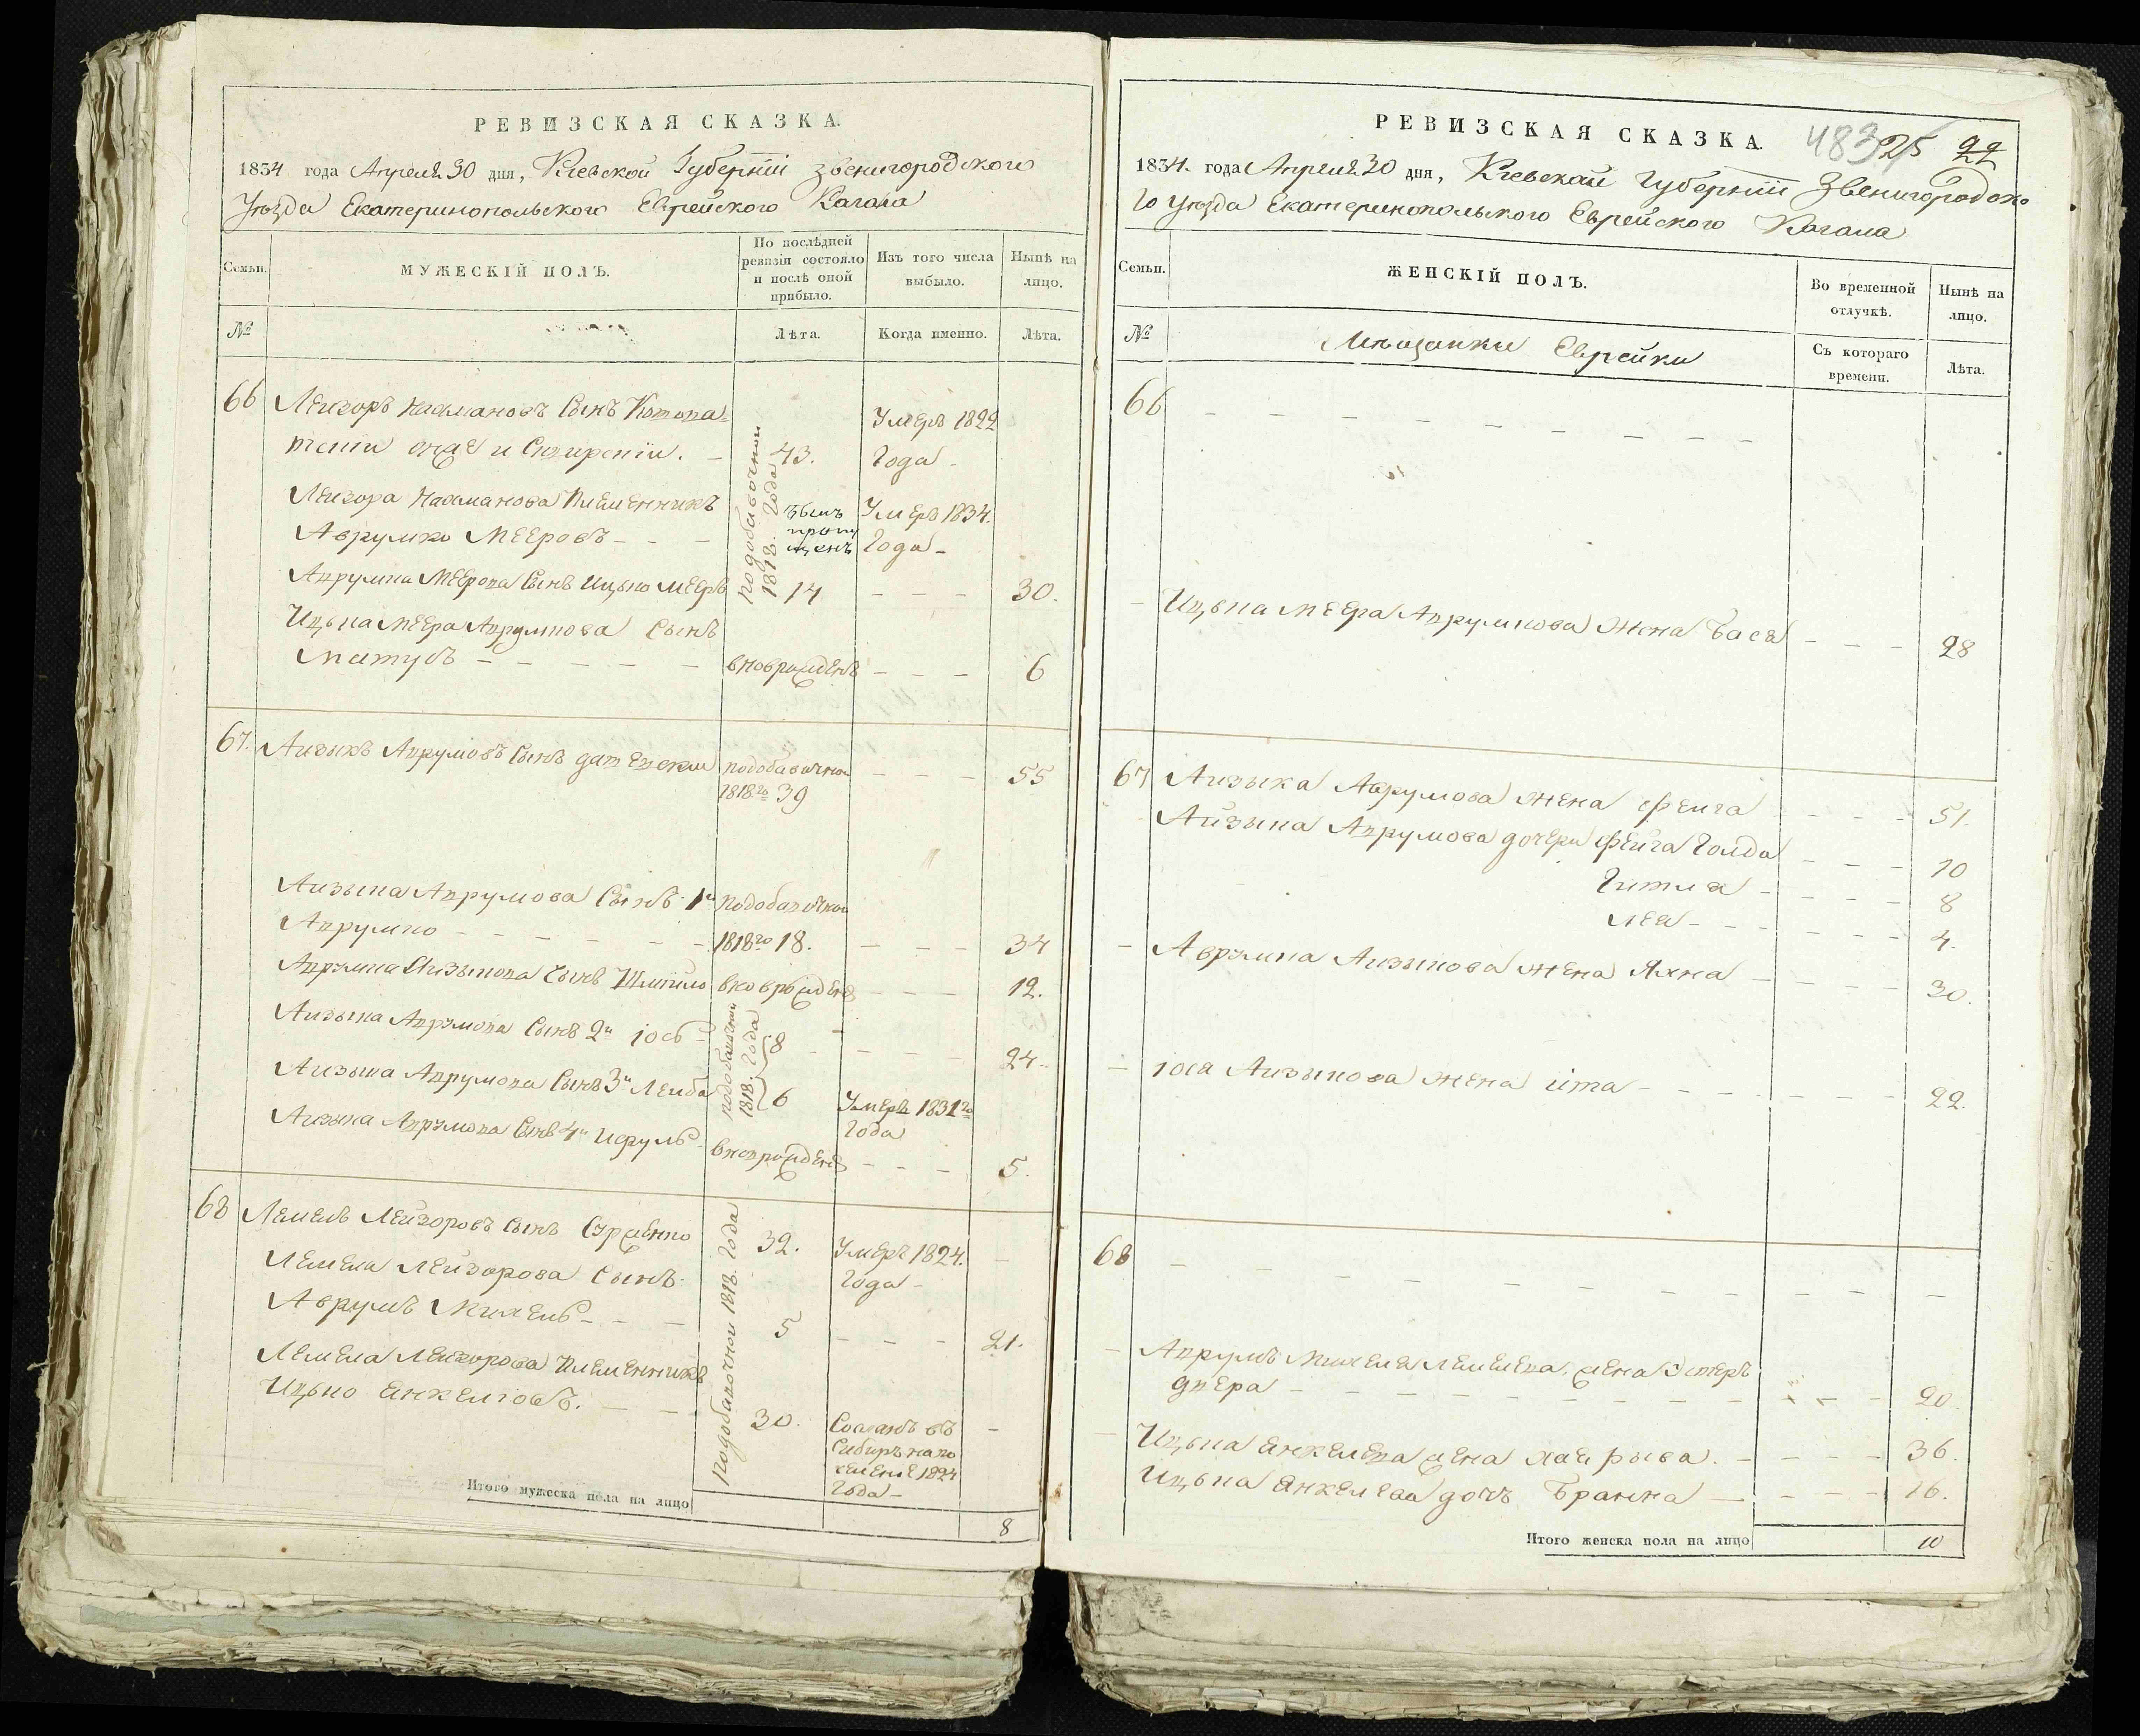 РЕВИЗСКАЯ СКАЗКА.
1834 года Апреля 30 дня, Киевской Губерніи Звенигородского
Уезда Екатеринопольского Еврейского Кагала
Семьи.
МУЖЕСКІЙ ПОЛЪ.
По послѣдней ревизіи состояло и послѣ оной прибыло.
Изъ того числа выбыло.
Нынѣ на лицо.
№
Лѣта.
Когда именно.
Лѣта.
66 Лейзоръ Нахмановъ Сынъ
43. Умеръ 1822 Года
подобавочной 1818. Года
Лейзора Нахманова Племенникъ
Аврумко Мееровъ былъ пропущенъ Умеръ 1834. Года
Аврумка Меерова Сынъ Ицько Мееръ 14 30.
Ицька Меера Аврумкова Сынъ
Матусъ вновьрожденъ 6
67. Айзыкъ Аврумовъ Сынъ подобавочной 55
1818го 39
Айзыка Аврумова Сынъ 1й подобавочной
Аврумко 1818го 18. 34
Аврумка Айзыкова Сынъ Шмилю вновьрожденъ 12.
Айзыка Аврумова Сынъ 2й Іось 8 24.
подобавочной 1818. Года
Айзыка Аврумова Сынъ 3й Лейба 6 Умеръ 1831го Года
Айзыка Аврумова Сынъ 4й Исруль вновьрожденъ 5.
68 Лемель Лейзоровъ Сынъ 32. Умеръ 1824. Года
Лемеля Лейзорова Сынъ
Аврумъ Михель 5 21.
подобавочной 1818. Года
Лемеля Лейзорова Племенникъ
Ицько Янкелювъ. 30. Сосланъ въ
Сибиръ на по
селение 1824
Года
Итого мужеска пола на лицо
8
РЕВИЗСКАЯ СКАЗКА.
483 25 22
1834. года Апреля 30 дня, Киевской Губерніи Звенигородско
го Уезда Екатеринопольского Еврейского Кагала
Семьи.
ЖЕНСКІЙ ПОЛЪ.
Во временной отлучкѣ.
Нынѣ на лицо.
№
Мещанки Еврейки
Съ котораго времени.
Лѣта.
66
Ицька Меера Аврумкова жена Бася 28
67 Айзыка Аврумова жена Фейга 51.
Айзыка Аврумова дочери Фейга Голда 10
Гитля 8
Лея 4.
Аврумка Айзыкова жена Яхна 30.
Іося Айзыкова жена Ита 22.
68
Аврумъ Михеля Лемелева жена Эстеръ
Двера 20.
Ицька Янкелева жена Хая Рыва. 36.
Ицька Янкелева дочъ Браина 16.
Итого женска пола на лицо
10